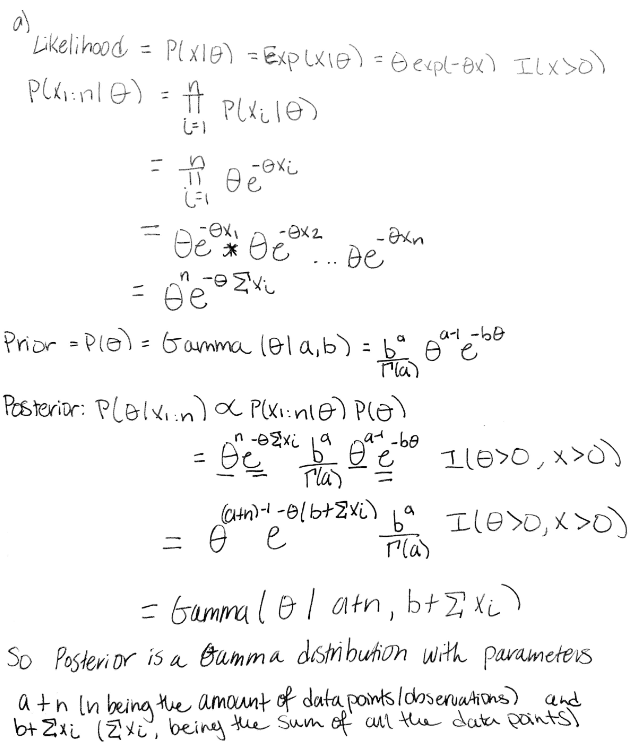 a)
Likelihood = P(x|θ) = Exp(x|θ) = θ exp(-θx) I(x>0)
P(x₁:n|θ) = ∏ᵢ₌₁ⁿ P(xᵢ|θ)
= ∏ᵢ₌₁ⁿ θe^(-θxᵢ)
= θe^(-θx₁) * θe^(-θx₂) ... θe^(-θxn)
= θⁿ e^(-θ Σxᵢ)
Prior = P(θ) = Gamma (θ|a,b) = b^a/Γ(a) θ^(a-1) e^(-bθ)
Posterior: P(θ|x₁:n) ∝ P(x₁:n|θ) P(θ)
= θⁿ e^(-θΣxᵢ) b^a/Γ(a) θ^(a-1) e^(-bθ) I(θ>0, x>0)
= θ^((a+n)-1) e^(-θ(b+Σxᵢ)) b^a/Γ(a) I(θ>0, x>0)
= Gamma(θ | a+n, b+Σxᵢ)
So Posterior is a Gamma distribution with parameters
a+n (n being the amount of data points/observations) and
b+Σxᵢ (Σxᵢ, being the sum of all the data points)